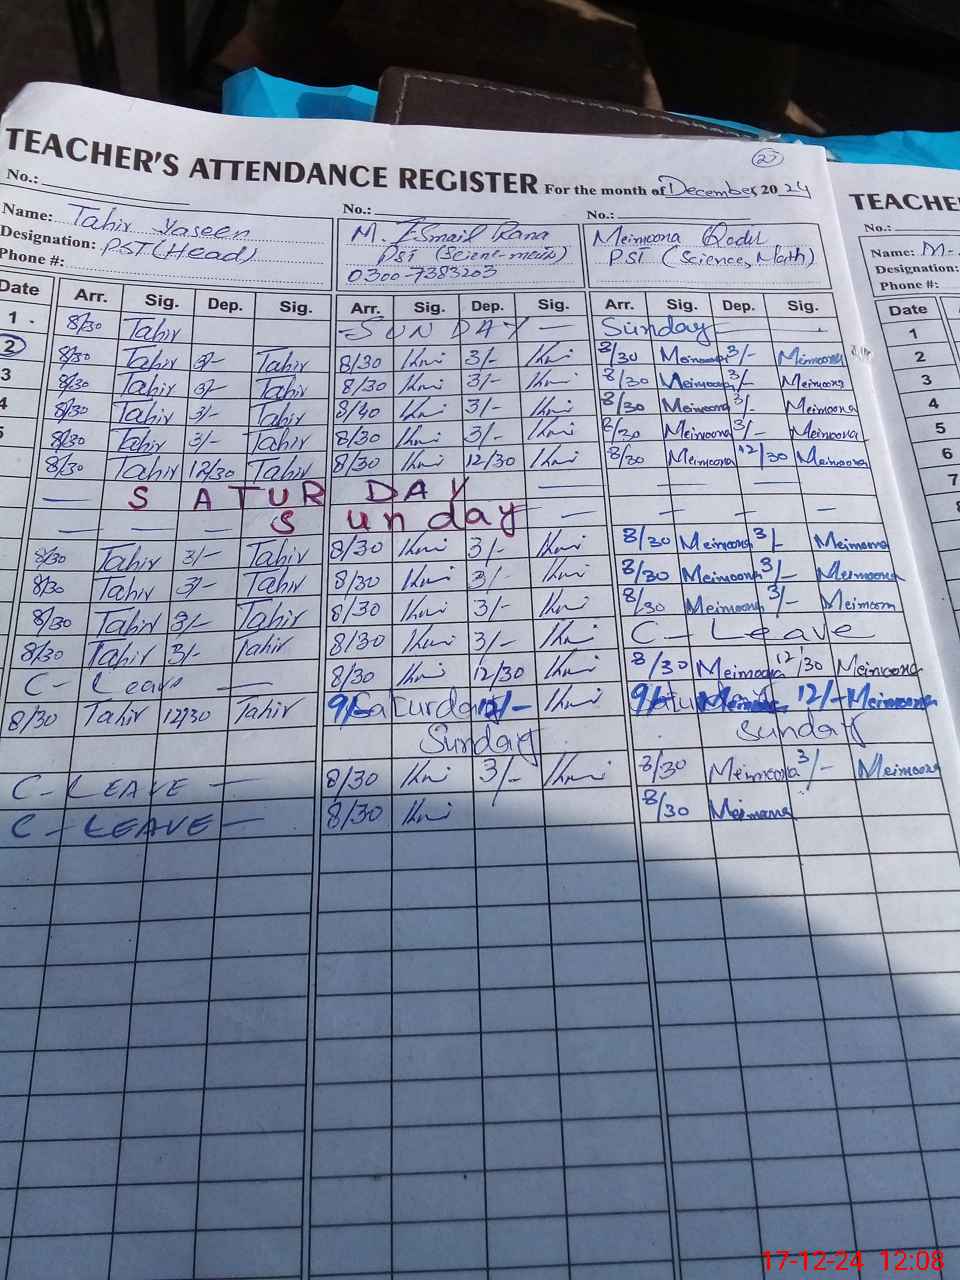 27
TEACHER'S ATTENDANCE REGISTER For the month of December 2024
No.: No.: No.:
Name: Tahir Yaseen M. Ismail Rana Meimoona
Designation: PST (Head) PST 0300-7383203 PST (Science, Math)
Phone #:
Date Arr. Sig. Dep. Sig. Arr. Sig. Dep. Sig. Arr. Sig. Dep. Sig.
1 8/30 Tahir SUNDAY — Sunday —
2 8/30 Tahir 3/- Tahir 8/30 3/- 8/30 Meimoona 3/- Meimoona
3 8/30 Tahir 3/- Tahir 8/30 3/- 8/30 Meimoona 3/- Meimoona
4 8/30 Tahir 3/- Tahir 8/30 3/- 8/30 Meimoona 3/- Meimoona
5 8/30 Tahir 3/- Tahir 8/30 3/- 8/30 Meimoona 3/- Meimoona
8/30 Tahir 12/30 Tahir 8/30 12/30 8/30 Meimoona 12/30 Meimoona
— SATURDAY — — —
— — — Sunday — — — —
8/30 Tahir 3/- Tahir 8/30 3/- 8/30 Meimoona 3/- Meimoona
8/30 Tahir 3/- Tahir 8/30 3/- 8/30 Meimoona 3/- Meimoona
8/30 Tahir 3/- Tahir 8/30 3/- 8/30 Meimoona 3/- Meimoona
8/30 Tahir 3/- Tahir 8/30 3/- C- Leave
C- Leave — 8/30 12/30 8/30 Meimoona 12/30 Meimoona
8/30 Tahir 12/30 Tahir 9/- Saturday 12/- 9/- Meimoona 12/- Meimoona
Sunday Sunday
C- LEAVE — 8/30 3/- 8/30 Meimoona 3/- Meimoona
C- LEAVE — 8/30 8/30 Meimoona
TEACHE
No.:
Name: M.
Designation:
Phone #:
Date
1
2
3
4
5
6
7
17-12-24 12:08